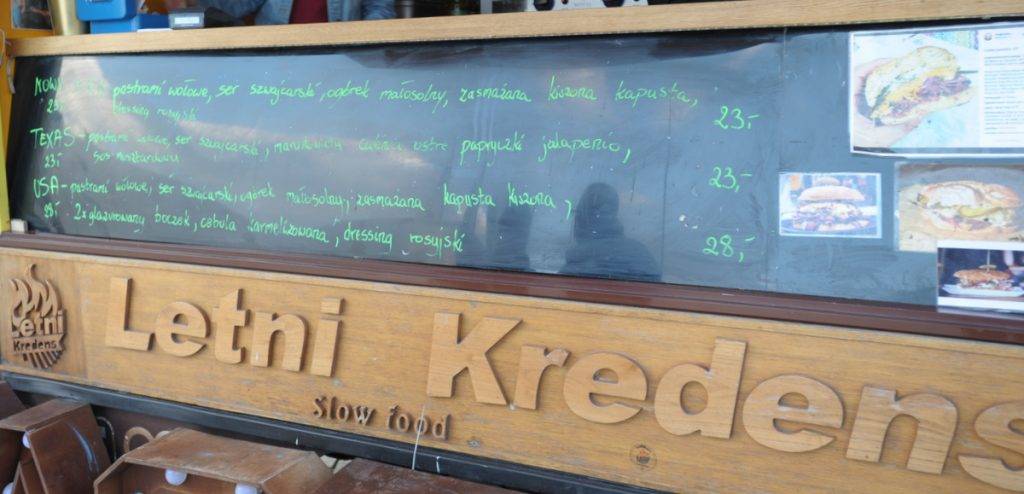 NOWY pastrami wołowe, ser szwajcarski, ogórek małosolny, zasmażana kiszona kapusta,
23,- dressing rosyjski 23,-
TEXAS - pastrami wołowe, ser szwajcarski, marynowana cukinia ostre papryczki jalapenio,
23,- sos musztardowy 23,-
USA - pastrami wołowe, ser szwajcarski, ogórek małosolny, zasmażana kapusta kiszona,
28,- 2x glazurowany boczek, cebula karmelizowana, dressing rosyjski 28,-
Letni
Kredens
Letni Kredens
Slow food